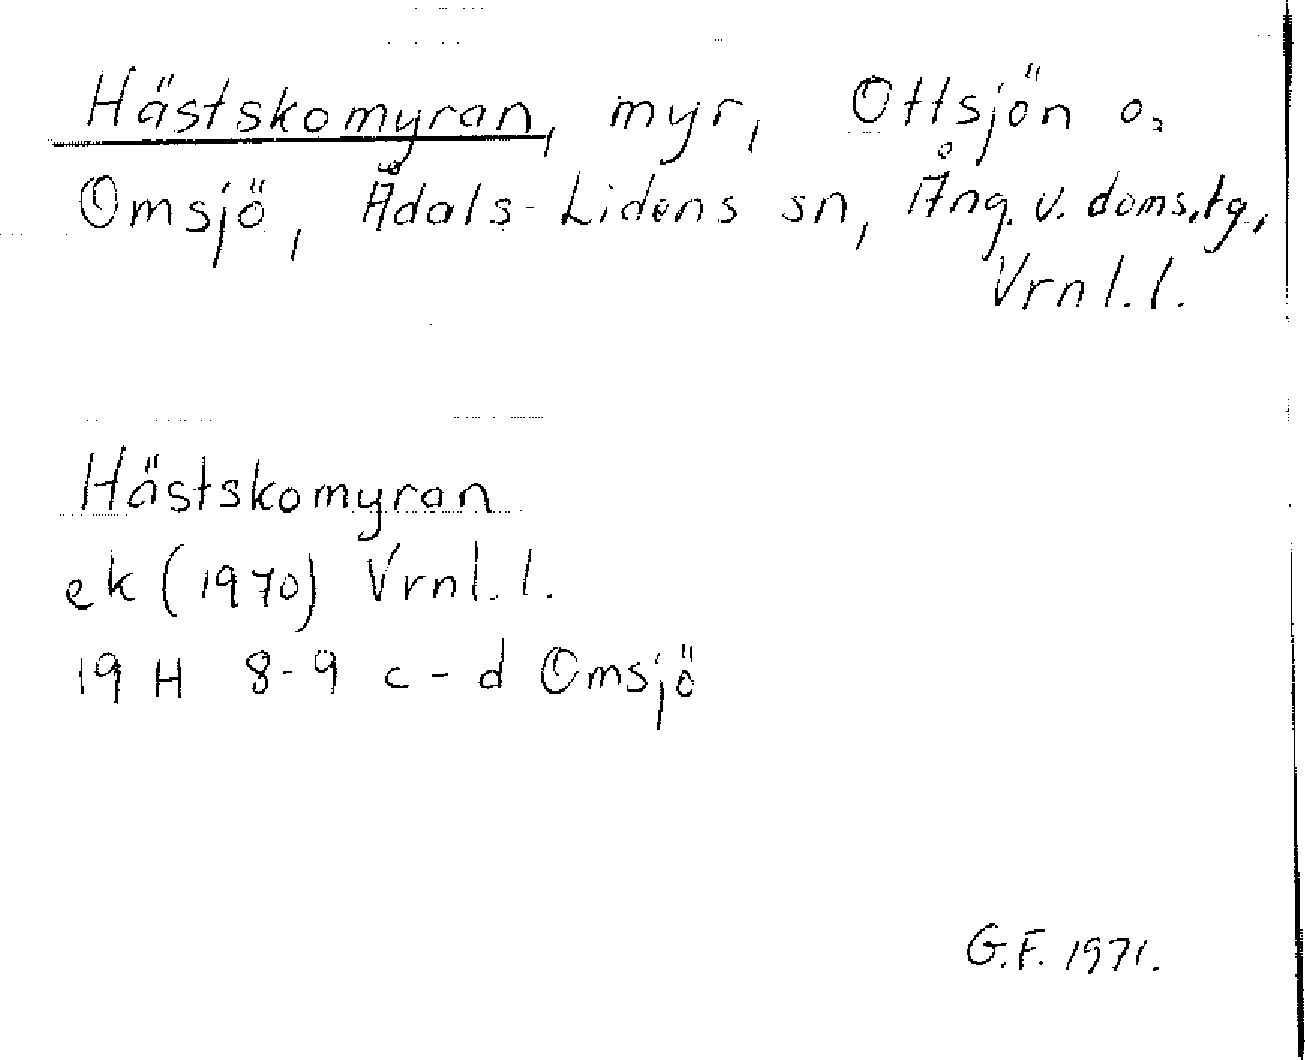 Hästskomyran, myr, Ottsjön o.
Omsjö, Ådals-Lidens sn, Ång. v. doms.tg,
Vrnl.l.
Hästskomyran
ek (1970) Vrnl.l.
19 H 8-9 c-d Omsjö
G.F. 1971.